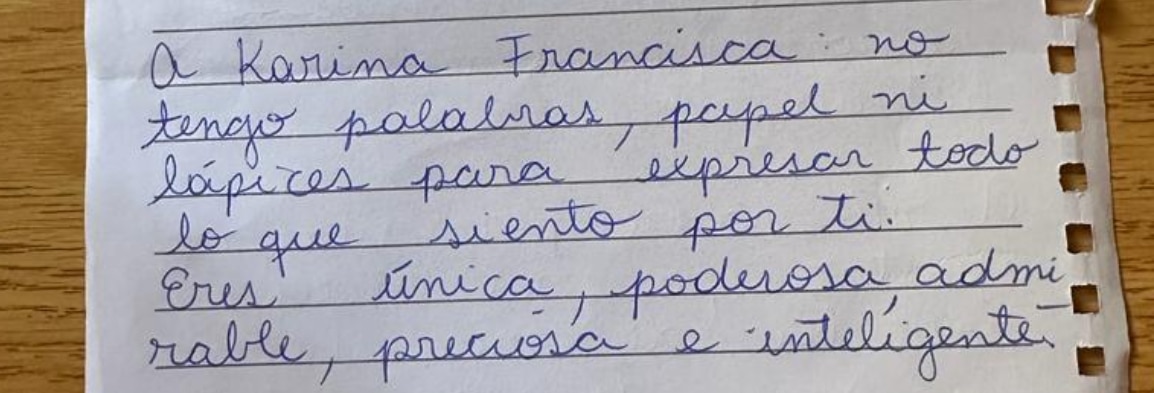 A Karina Francisca: no
tengo palabras, papel ni
lápices para expresar todo
lo que siento por ti.
Eres única, poderosa, admi
rable, preciosa e inteligente.